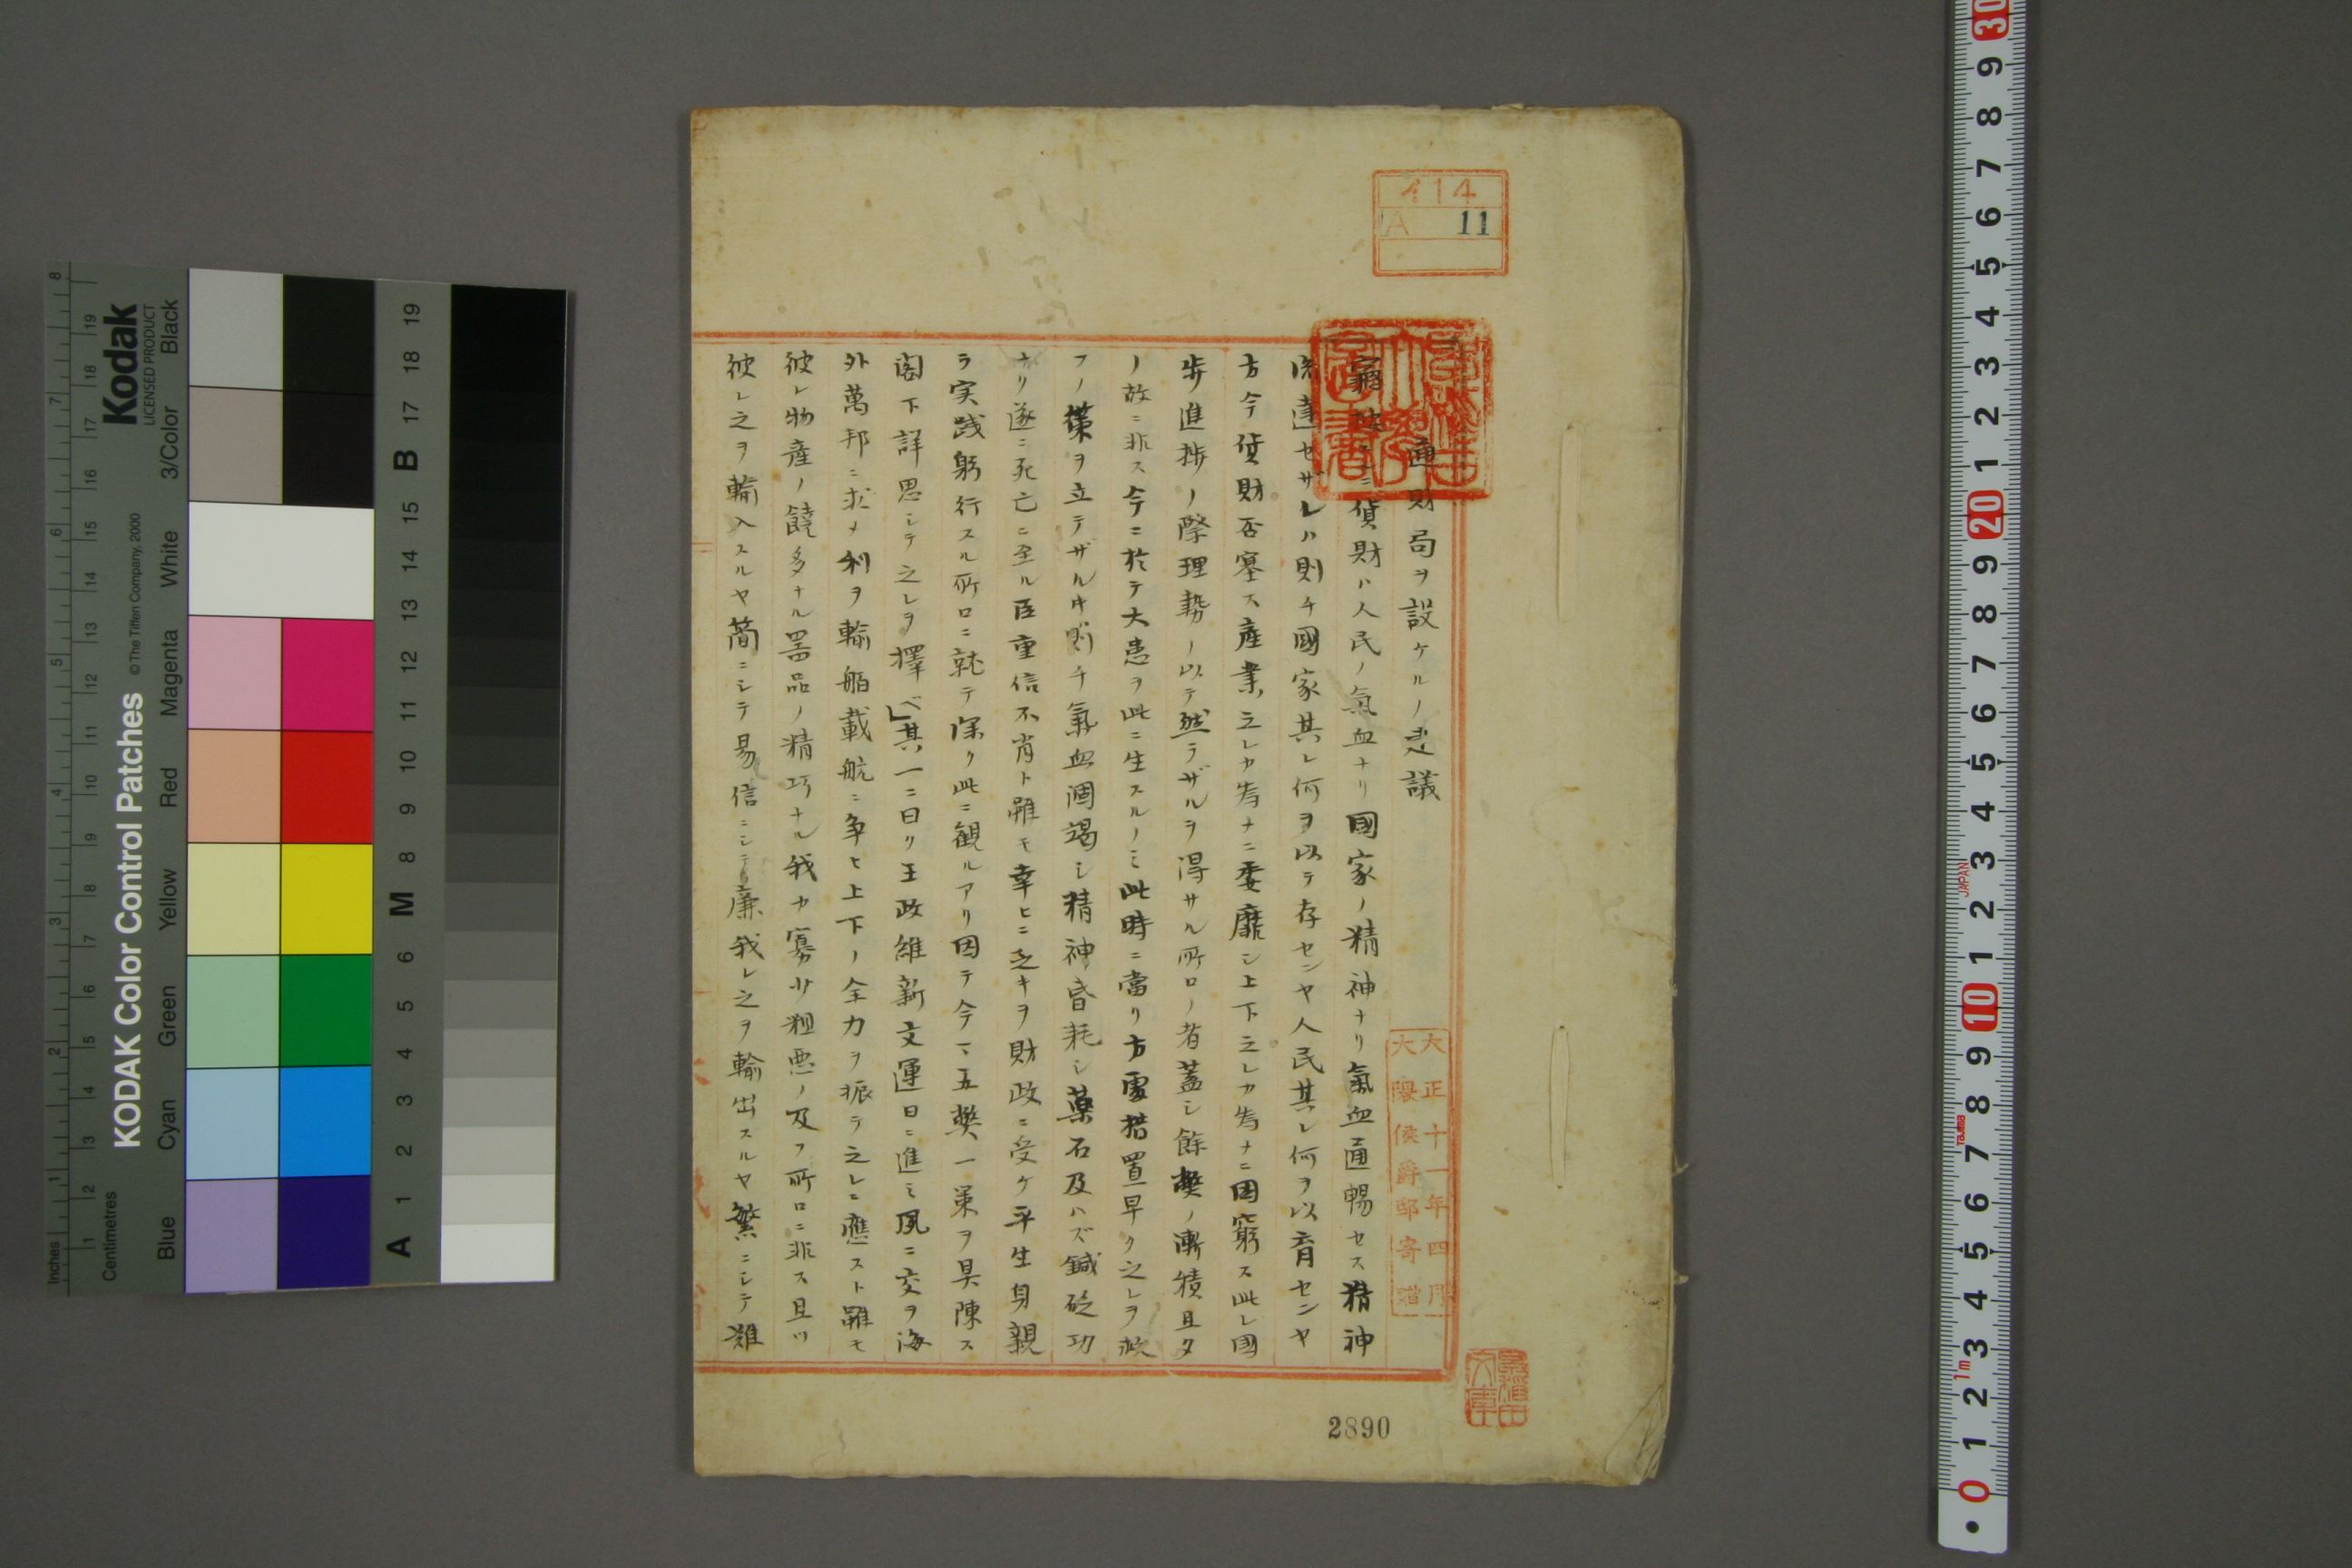 イ14
A 11
通財局ヲ設ケルノ建議
竊按スルニ貨財ハ人民ノ氣血ナリ國家ノ精神ナリ氣血通暢セス精神
流達セザレハ則チ國家其レ何ヲ以テ存センヤ人民其レ何ヲ以育センヤ
方今貨財否塞ス産業之レカ為ナニ委靡シ上下之レカ為ナニ困窮ス此レ國
歩進捗ノ際理勢ノ以テ然ラザルヲ得サル所ロノ者蓋シ餘弊ノ漸積且タ
ノ故ニ非ス今ニ於テ大患ヲ此ニ生スルノミ此時ニ當リ方畧措置早ク之レヲ救
フノ策ヲ立テザル寸則チ氣血涸竭シ精神昏耗シ薬石及ハズ鍼砭功
ナリ遂ニ死亡ニ至ル臣重信不肖ト雖モ幸ヒニ乏キヲ財政ニ受ケ平生身親
ラ実践躬行スル所ロニ就テ深ク此ニ観ルアリ因テ今マ五弊一策ヲ具陳ス
閣下詳思シテ之レヲ擇ベ」其一ニ曰ク王政維新文運日ニ進ミ夙ニ交ヲ海
外萬邦ニ求メ利ヲ輸船載航ニ争ヒ上下ノ全力ヲ振テ之レニ應スト雖モ
彼レ物産ノ饒多ナル器品ノ精巧ナル我カ寡少粗悪ノ及フ所ロニ非ス且ツ
彼レ之ヲ輸入スルヤ簡ニシテ易信ニシテ廉我レ之ヲ輸出スルヤ繁ニシテ難
大正十一年四月
大隈侯爵邸寄贈
早稲田大學圖書
早稲田文庫
2890
KODAK Color Control Patches
© The Tiffen Company, 2000
Kodak
LICENSED PRODUCT
Inches
Centimetres
Blue Cyan Green Yellow Red Magenta White 3/Color Black
A 1 2 3 4 5 6 M 8 9 10 11 12 13 14 15 B 17 18 19
JAPAN
Tajima
1m